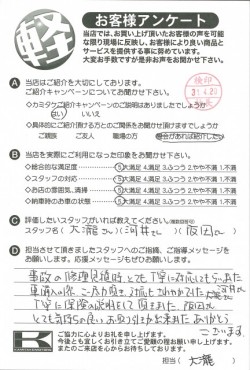 軽
お客様アンケート
当店では、お買い上げ頂いたお客様の声を可能
な限り現場に反映し、お客様により良い商品と
サービスを提供する事に努めています。
大変お手数ですが是非お声をお聞かせ下さい。
A 当店はご紹介を大切にしております。
ご紹介キャンペーンについてお聞かせ下さい。
検印
◇カミタケご紹介キャンペーンのご説明はありましたでしょうか
はい いいえ
◇具体的にご紹介頂ける方とのご関係をお聞かせ頂けますでしょうか
ご親族 ご友人 職場の方
B 当店を実際にご利用になった印象をお聞かせ下さい。
◇総合的な満足度 5大満足 4.満足 3.ふつう 2.やや不満 1.不満
◇スタッフの対応 5大満足 4.満足 3.ふつう 2.やや不満 1.不満
◇お店の雰囲気、清掃 5大満足 4.満足 3.ふつう 2.やや不満 1.不満
◇納車時のお車の状態 5大満足 4.満足 3.ふつう 2.やや不満 1.不満
C 評価したいスタッフがいれば教えてください。(複数回答可)
スタッフ名( 大瀧さん )( 河井さん )( 阪田さん )
D 担当させて頂きましたスタッフへのご指摘、ご指導メッセージを
お願いします。応援メッセージもぜひお願いします。
事故の修理見積時とても丁寧に対応してもらえた
丁寧に保険の説明をして頂きました。阪田さん
とても気持ちの良いお取り引きが出来ました ありがとう
ございます。
ご協力に心よりお礼を申し上げます。
今後とも宜しくお引き立てご愛顧の程お願い申し上げます。
またのご来店を心からお待ちしております。
担当( 大瀧 )